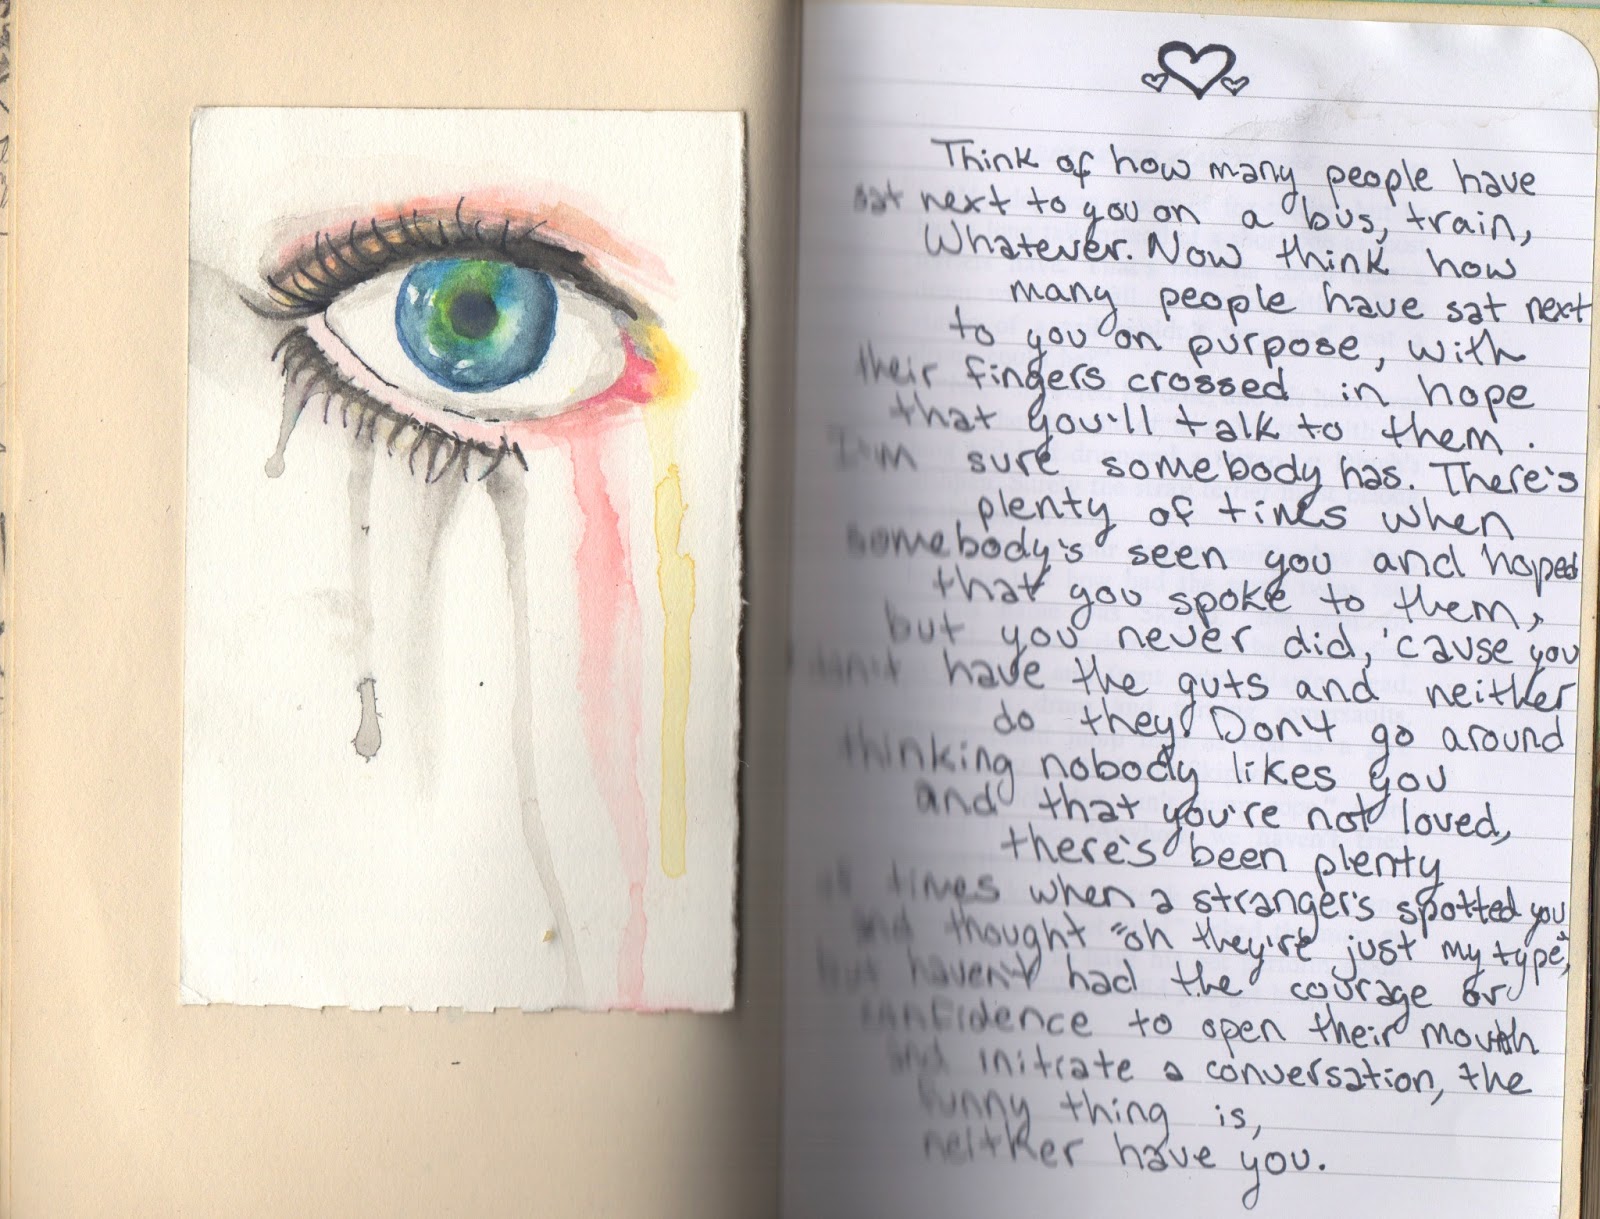 Think of how many people have
sat next to you on a bus, train,
Whatever. Now think how
many people have sat next
to you on purpose, with
their fingers crossed in hope
that you'll talk to them.
I'm sure somebody has. There's
plenty of times when
somebody's seen you and hoped
that you spoke to them,
but you never did, 'cause you
don't have the guts and neither
do they. Don't go around
thinking nobody likes you
and that you're not loved,
there's been plenty
of times when a stranger's spotted you
and thought "oh they're just my type",
but haven't had the courage or
confidence to open their mouth
and initiate a conversation, the
funny thing is,
neither have you.